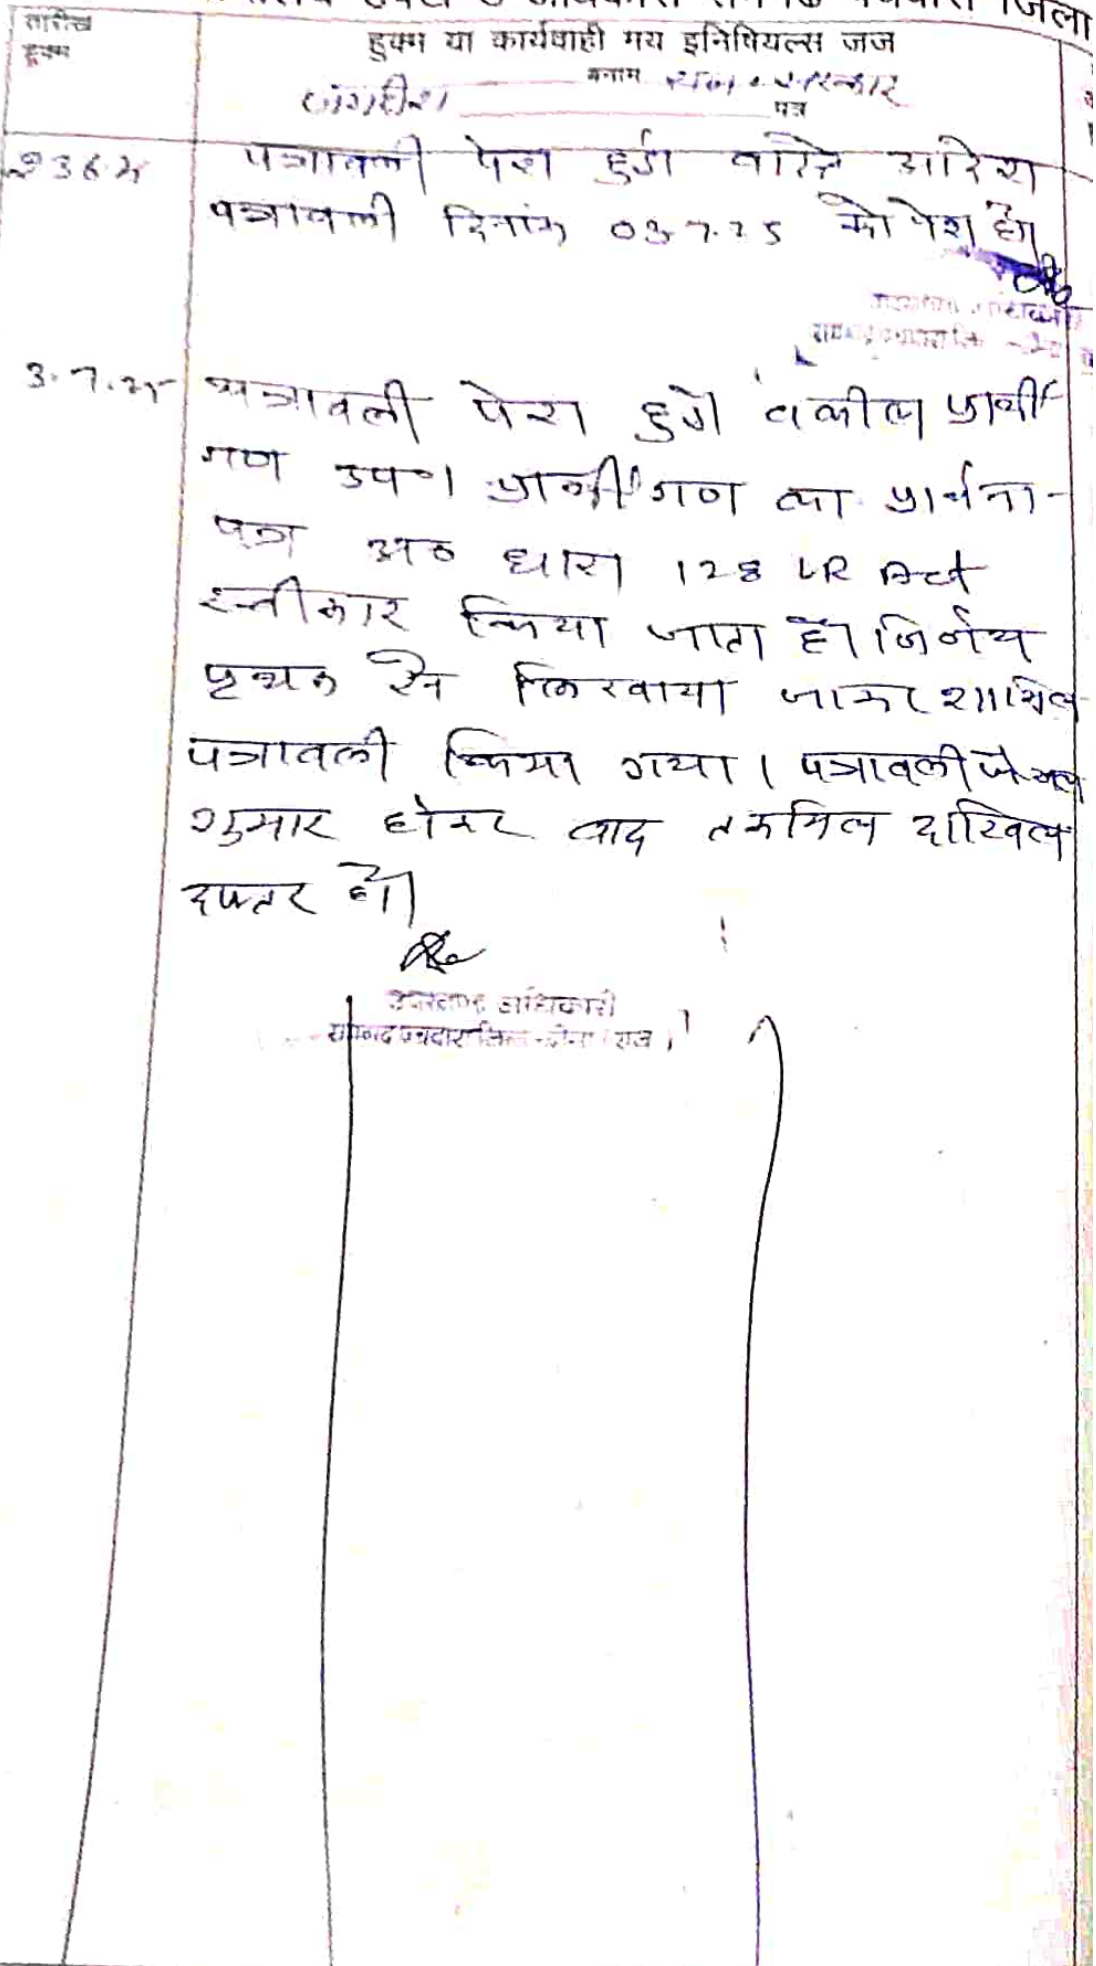 जिला
तारीख
हुक्म
हुक्म या कार्यवाही मय इनिषियल्स जज
बनाम
सरकार
पत्र
पत्रावली पेश हुई। वास्ते आदेश
पत्रावली दिनांक 03.7.25 को पेश हो।
3.7.25 पत्रावली पेश हुई। वकील प्रार्थी
गण उप०। प्रार्थीगण का प्रार्थना-
पत्र अ० धारा 128 LR Act
स्वीकार किया जाता है। निर्णय
पृथक से लिखवाया जाकर शामिल
पत्रावली किया गया। पत्रावली फैसल
शुमार होकर बाद तकमिल दाखिल
दफ्तर हो।
उपखण्ड अधिकारी